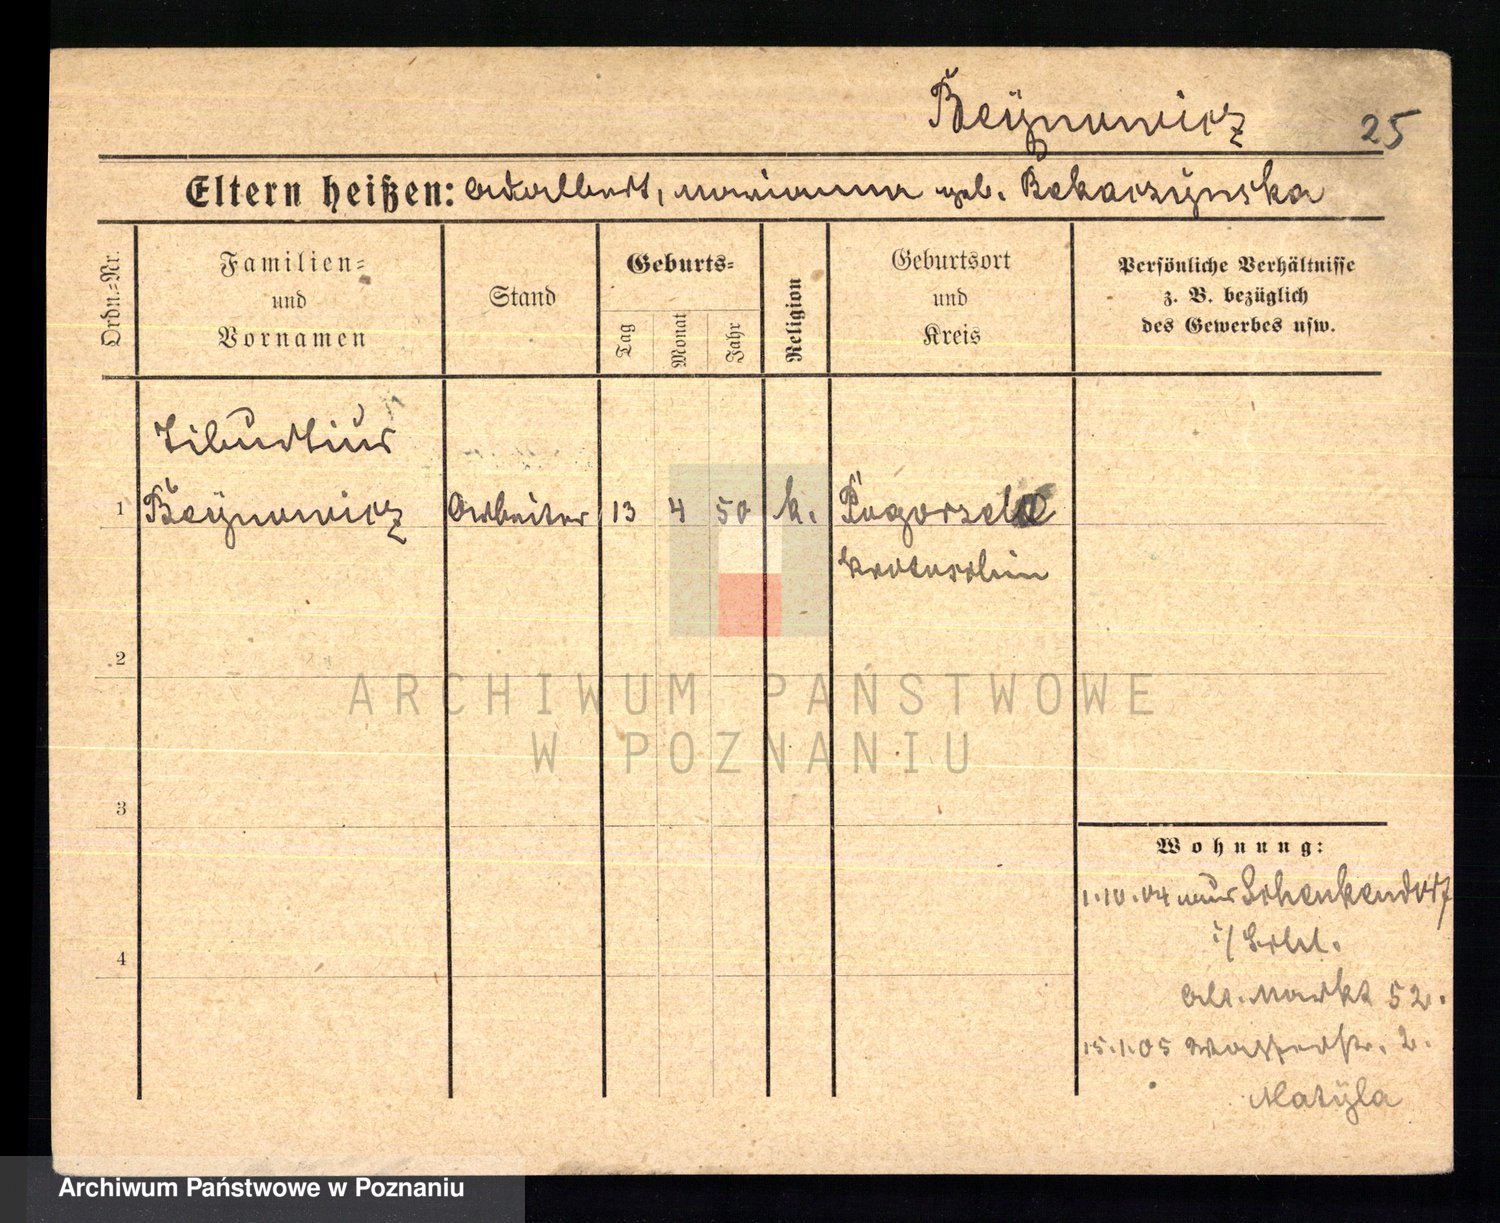 Beÿnowicz 25
Eltern heißen: Adalbert, Marianna geb. Bekarzÿnska
Ordn.=Nr.
Familien=
und
Vornamen
Stand
Geburts=
Tag
Monat
Jahr
Religion
Geburtsort
und
Kreis
Persönliche Verhältnisse
z. B. bezüglich
des Gewerbes usw.
Tiburtius
1 Beÿnowicz Arbeiter 13 4 50 k. Pogorzela
Krotoschin
2
ARCHIWUM PAŃSTWOWE
W POZNANIU
3
Wohnung:
1.10.04 nur Schenkendorf
i/Schl.
4
Alt. Markt 52.
15.1.05 Wasserstr. 2.
Matÿla
Archiwum Państwowe w Poznaniu